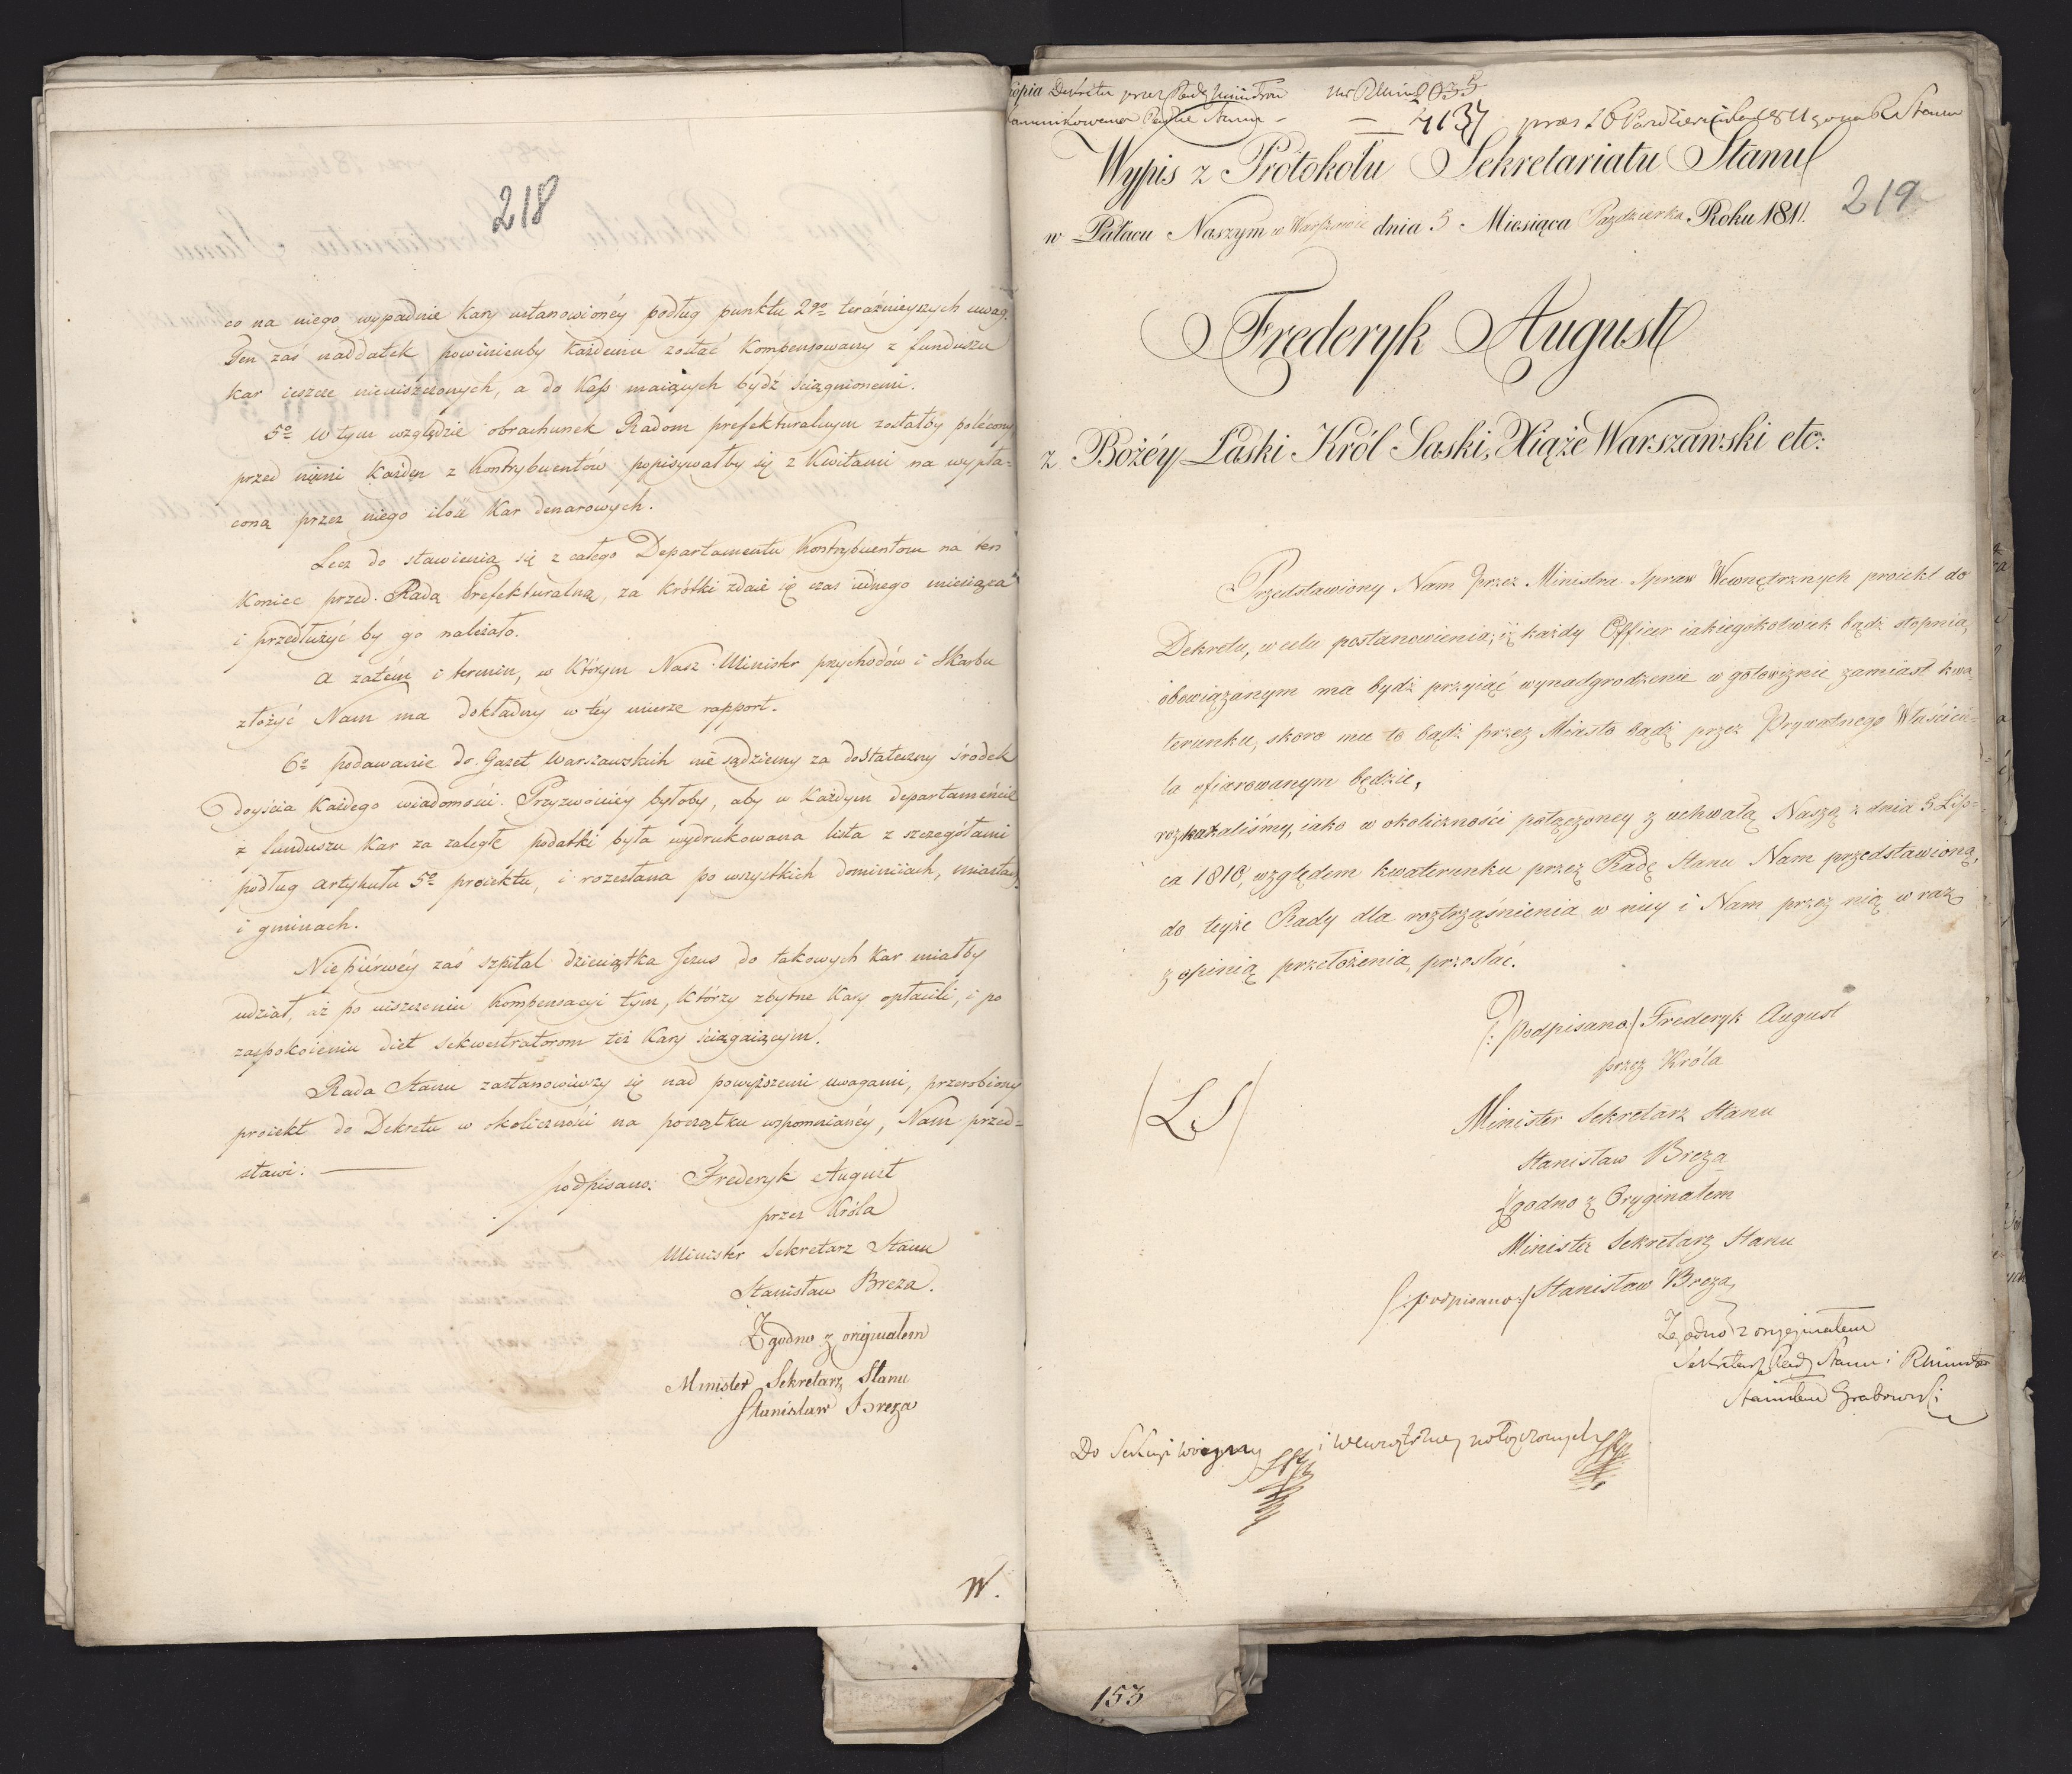 218
co na niego wypadnie kary ustanowionéy podług punktu 2go teraźnieyszych uwag.
Ten zaś naddatek powinienby każdemu zostać kompensowany z funduszu
kar ieszcze nieuiszczonych, a do Kass maiących bydź ściągnionemi.
5o W tym względzie obrachunek Radom prefekturalnym zostałby polecony
przed niemi każden z Kontrybuentów popisywałby się z Kwitami na wypła-
coną przez niego ilość Kar denarowych.
Lecz do stawienia się z całego Departamentu Kontrybuentom na ten
koniec przed Radą Prefekturalną, za krótki zdaie się czas iednego miesiąca
i przedłużyć by go należało.
A zatém i termin, w którym Nasz Minister przychodów i Skarbu
złożyć Nam ma dokładny w téy mierze rapport.
6o podawanie do Gazet Warszawskich nie sądziemy za dostateczny środek
doyścia każdego wiadomości. Przyzwoiciéy byłoby, aby w każdym departamencie
z funduszu Kar za zaległe podatki była wydrukowana lista z szczegółami
podług artykułu 5o proiektu, i rozesłana po wszystkich dominiiach, miastach
i gminach.
Niepiérwéy zaś szpital dzieciątka Jezus do takowych kar miałby
udział, aż po uiszczeniu kompensacyi tym, którzy zbytne kary opłacili, i po
zaspokoieniu diet sekwestratorom też kary ściągaiącym.
Rada Stanu zastanowiwszy się nad powyższemi uwagami, przerobiony
proiekt do Dekretu w okoliczności na początku wspomnianéy, Nam przed=
stawi.
podpisano: Frederyk August
przez Króla
Minister Sekretarz Stanu
Stanisław Breza.
Zgodno z originałem
Minister Sekretarz Stanu
Stanisław Breza
W.
kopia Dekretu przez Radę Ministrów
4137
Wypis z Protokołu Sekretariatu Stanu
219
w Pałacu Naszym w Warszawie dnia 5 Miesiąca Pazdzierka Roku 1811.
Frederyk August
z Bożéy Łaski Król Saski, Xiąże Warszawski etc:
Przedstawiony Nam przez Ministra Spraw Wewnętrznych proiekt do
Dekretu, w celu postanowienia, iż każdy Officer iakiegokolwiek bądź stopnia,
obowiązanym ma bydź przyiąć wynadgrodzenie w gotowiznie zamiast kwa
terunku, skoro mu to bądź przez Miasto bądź przez Prywatnego Właścicie=
la ofiarowanym będzie,
rozkazaliśmy, iako w okoliczności połączoney z uchwałą Naszą z dnia 5 Lip=
ca 1810, względem kwaterunku przez Radę Stanu Nam przedstawioną,
do teyże Rady dla roztrząśnienia w niey i Nam przez nią wraz
z opinią przełożenia, przesłać.
/: podpisano/ Frederyk August
przez Króla
/LS/
Minister Sekretarz Stanu
Stanisław Breza
Zgodno z Oryginałem
Minister Sekretarz Stanu
/:podpisano:/ Stanisław Breza
Zgodno z oryginałem
Sekretarz Rady Stanu i RMinistrów
Stanisław Grabowski
Do Sekcyi Woyny i Wewnętrzney połączonych
153